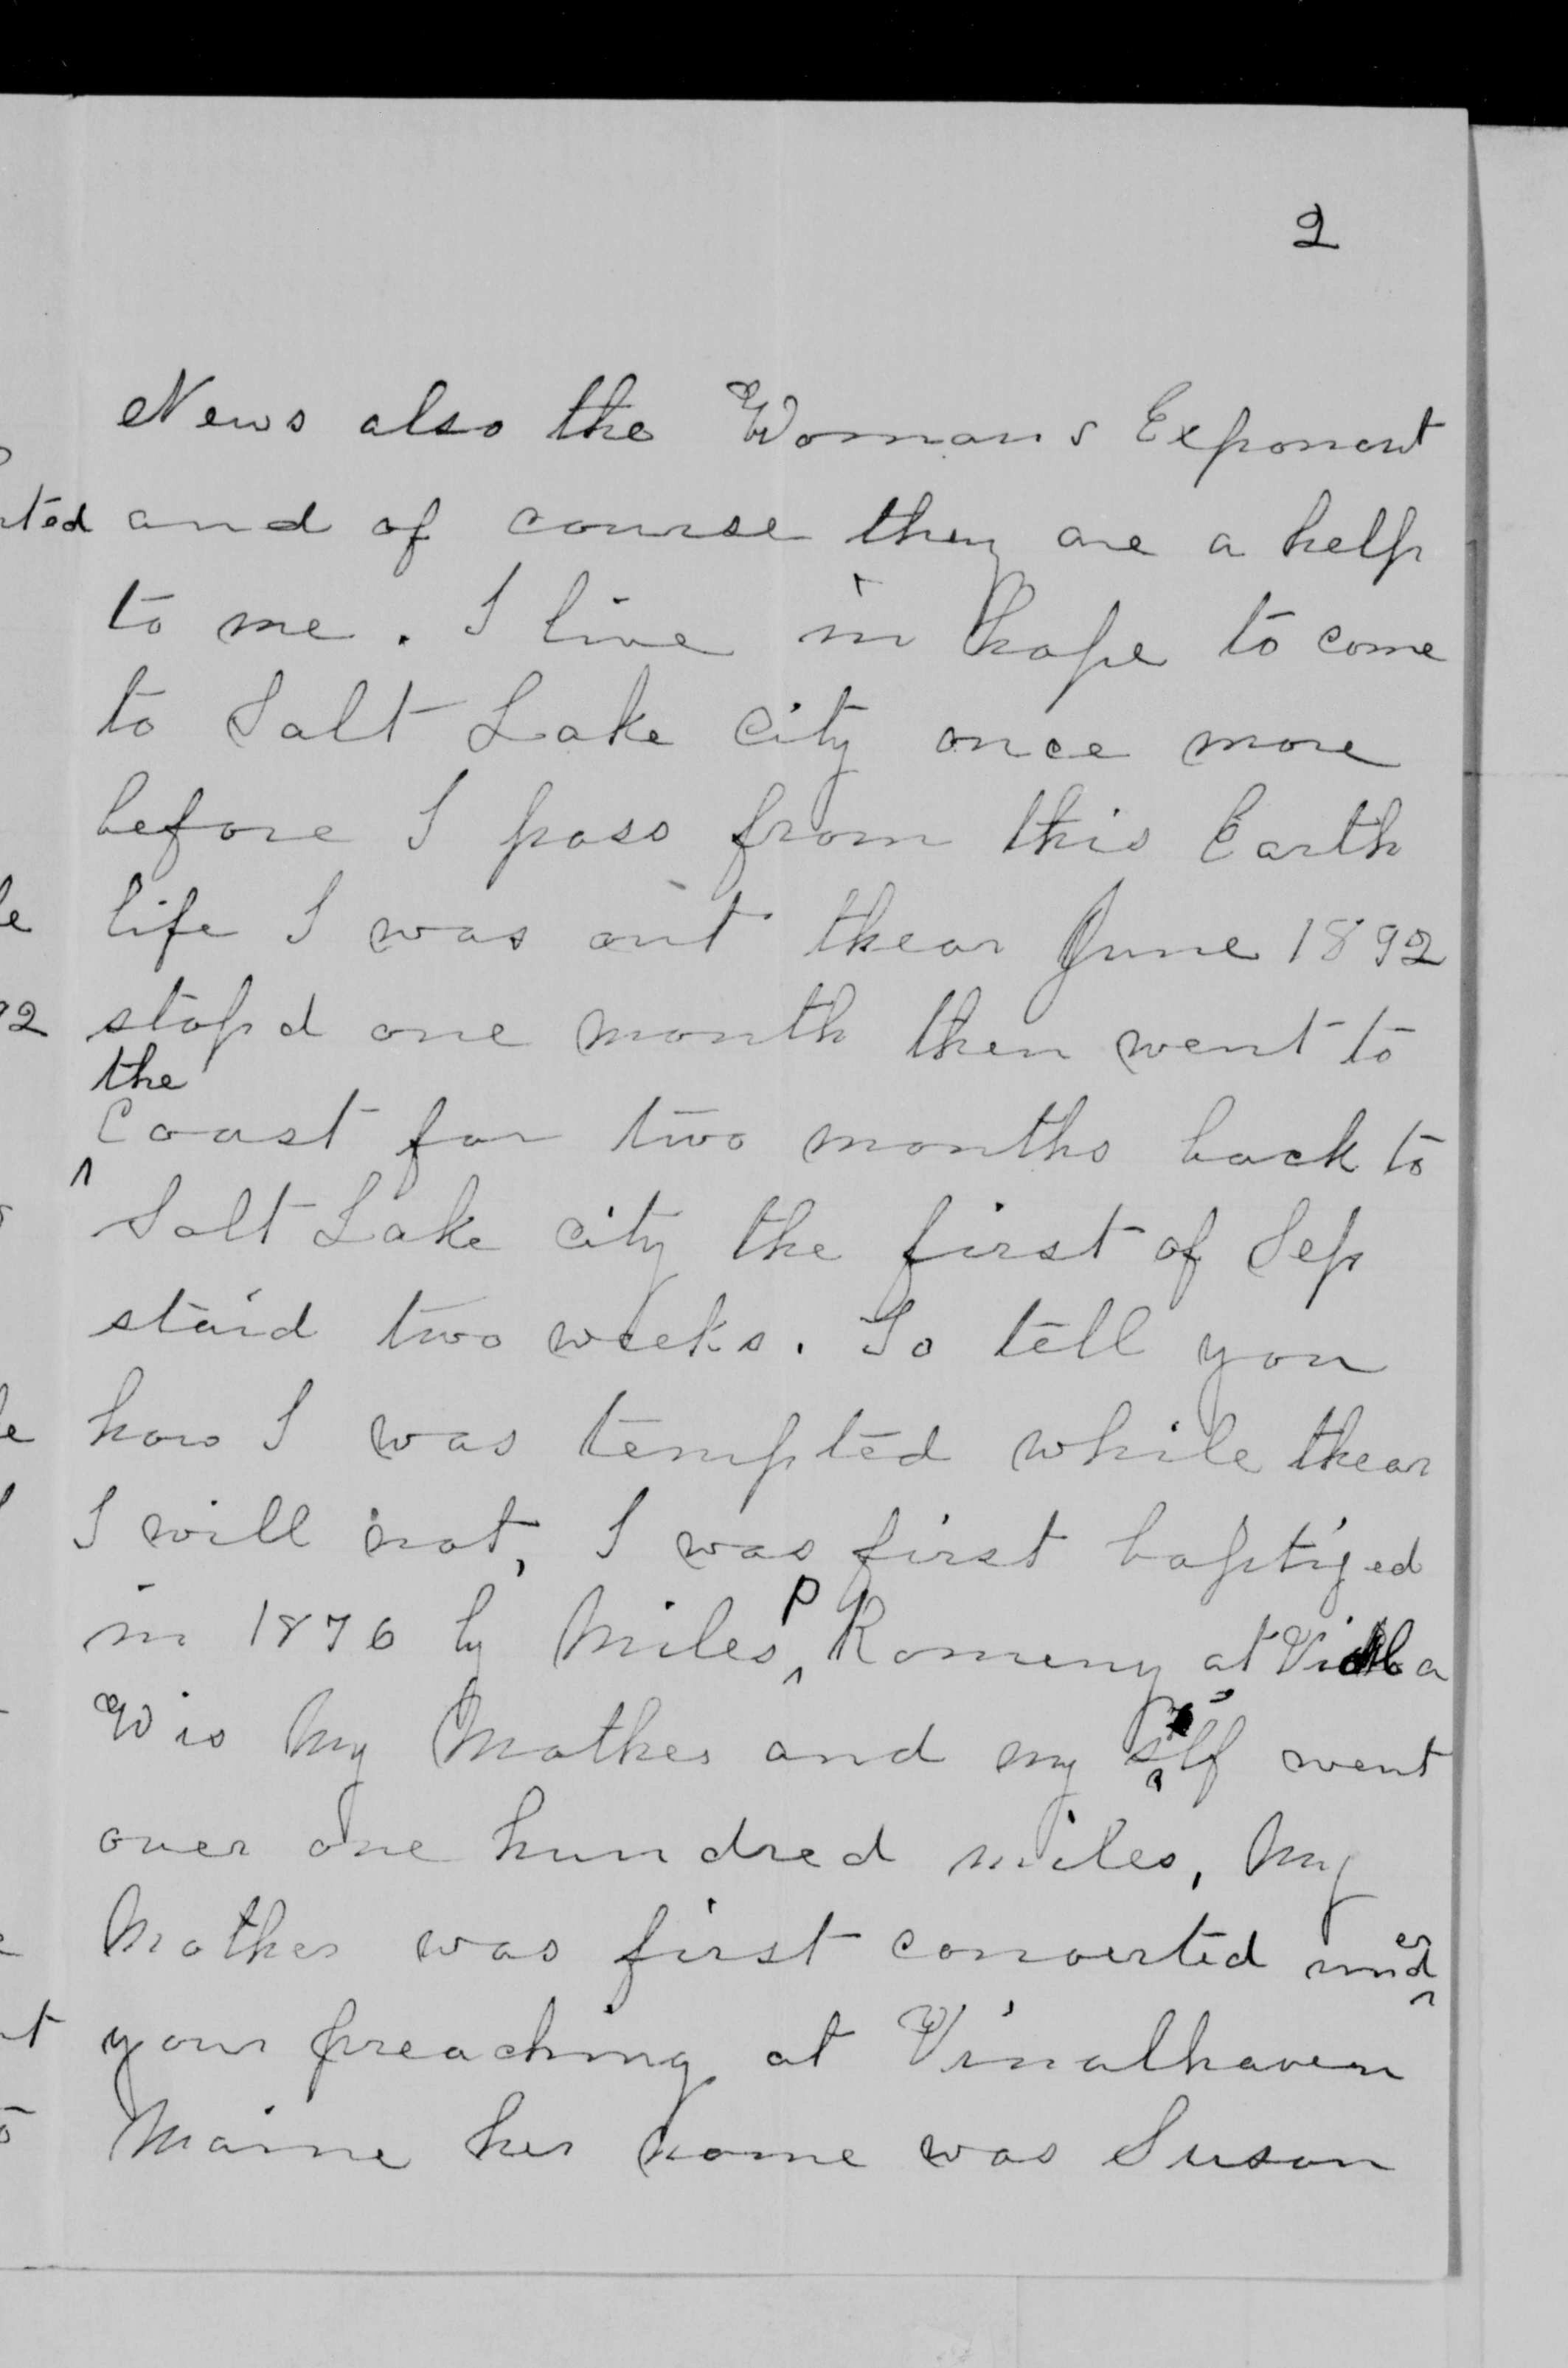 2
News also the Womans Exponent
and of course they are a help
to me. I live in hope to come
to Salt Lake City once more
before I pass from this Earth
life I was out thear June 1892
stopd one month then went to
the
Coast for two months back to
Salt Lake city the first of Sep
staid two weeks. To tell you
how I was tempted while thear
I will not, I was first baptized
in 1876 by Miles P Romeny at
Wis My Mother and my self went
over one hundred miles, My
Mother was first converted under
your preaching at Vinalhaven
Maine her name was Susan